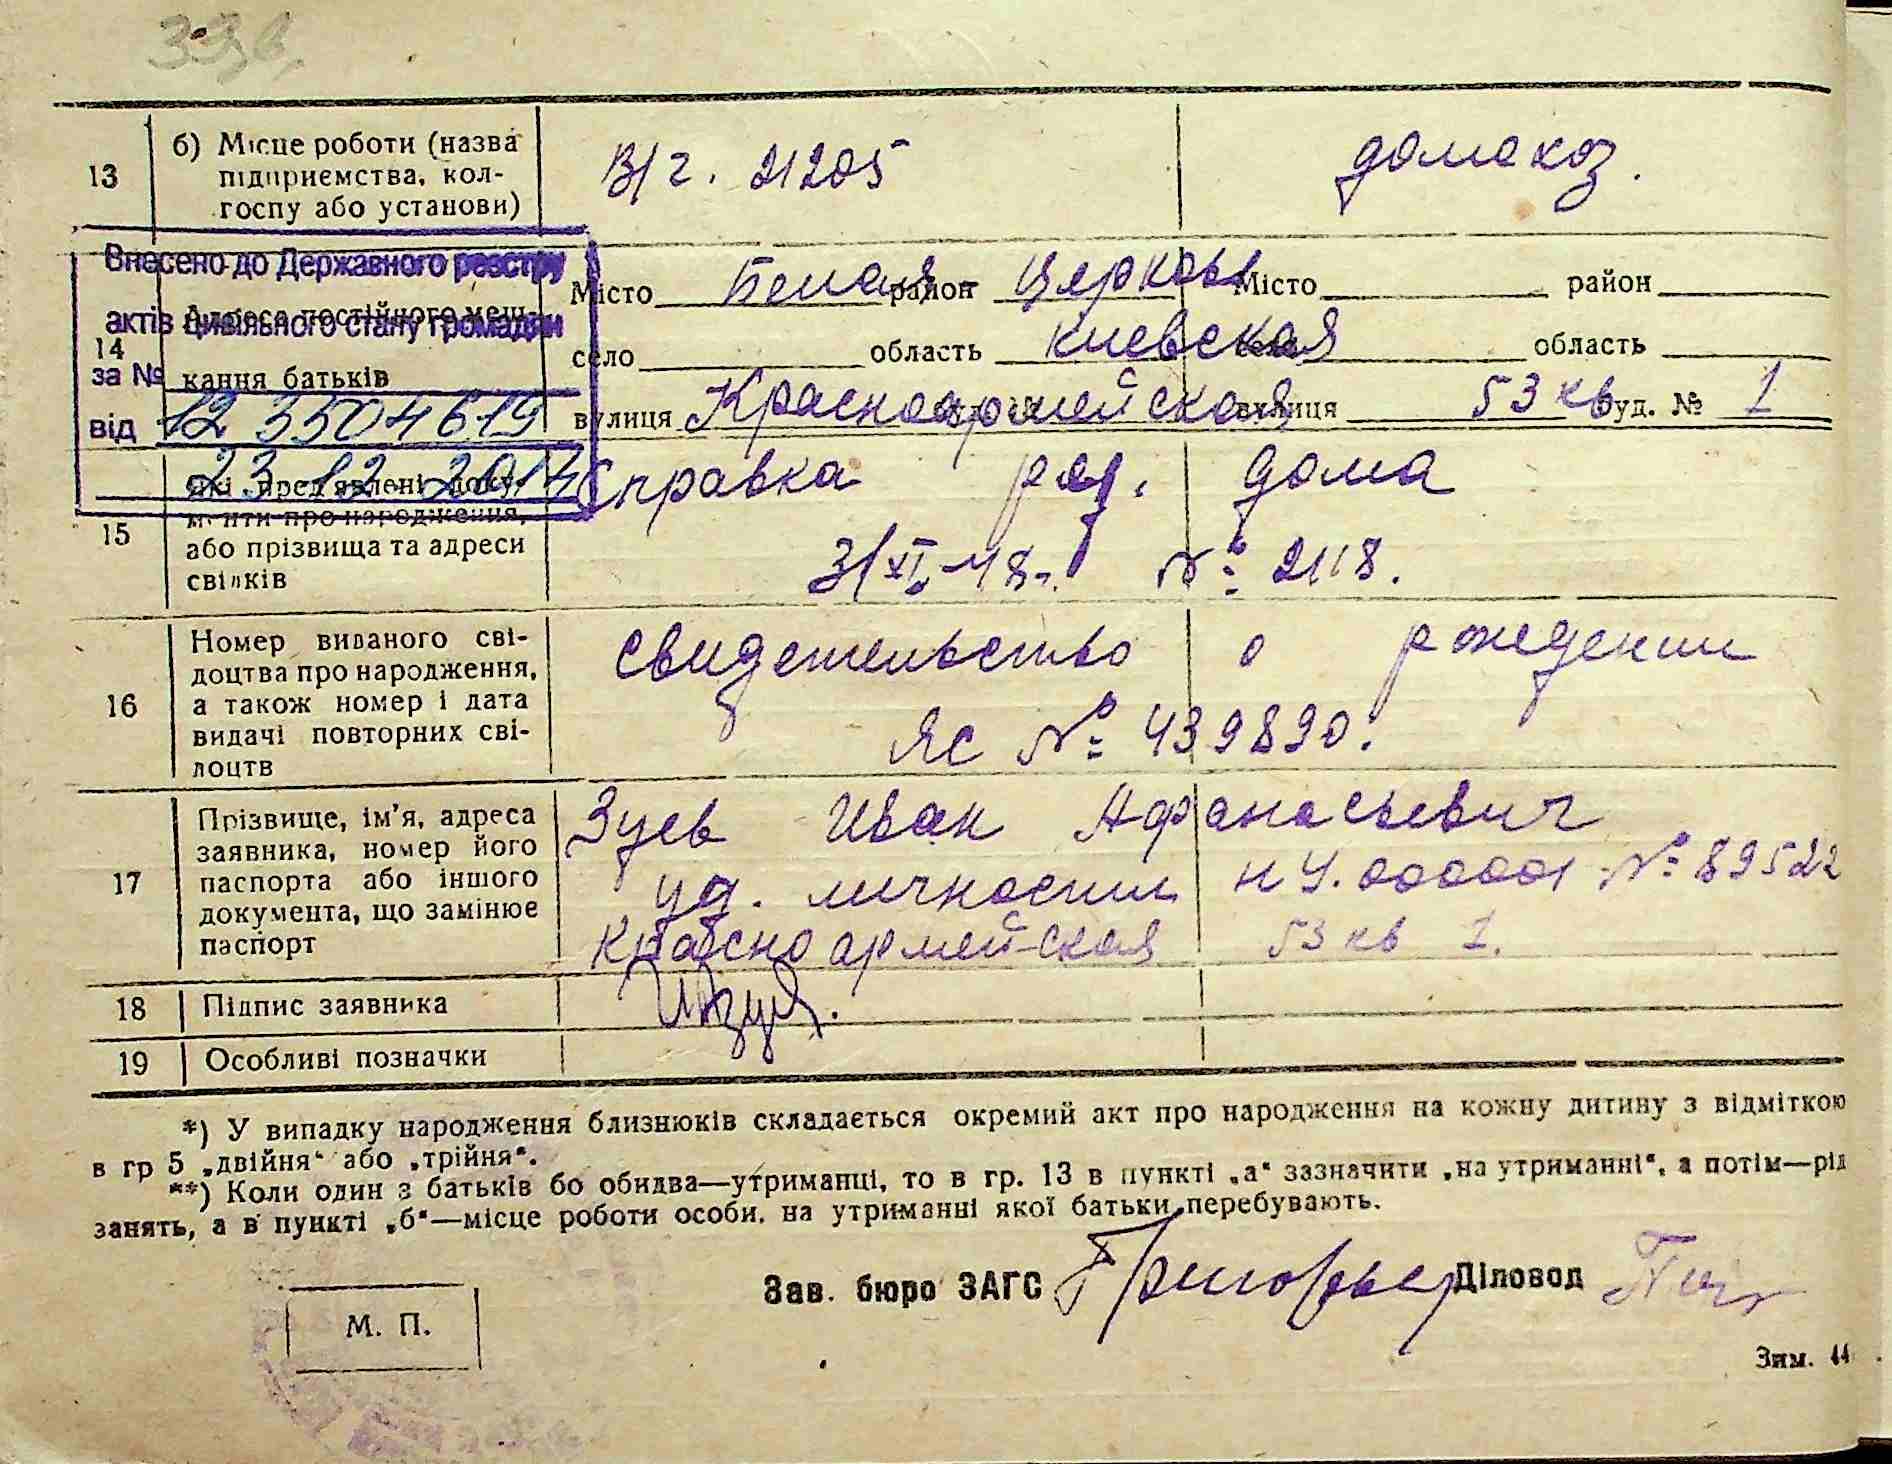 13
б) Місце роботи (назва
підприємства, кол-
госпу або установи)
В/ч. 21205
домохоз.
Внесено до Державного реєстру
актів цивільного стану громадян
за №
від 12 3504619
23 12 2014
14
Адреса постійного меш-
кання батьків
Місто Белая район Церковь Місто район
село область киевская село область
вулиця Красноармейская вулиця 53 кв буд. № 1
15
Які пред'явлені доку-
менти про народження,
або прізвища та адреси
свідків
Справка род. дома
3/XI-48г. № 2118.
16
Номер виданого сві-
доцтва про народження,
а також номер і дата
видачі повторних сві-
доцтв
Свидетельство о рождении
ЯС № 439890.
17
Прізвище, ім'я, адреса
заявника, номер його
паспорта або іншого
документа, що замінює
паспорт
Зуев Иван Афанасьевич
уд. личности № 89522
Красноармейская 53 кв 1.
18
Підпис заявника
19
Особливі позначки
*) У випадку народження близнюків складається окремий акт про народження на кожну дитину з відміткою
в гр 5 „двійня“ або „трійня“.
**) Коли один з батьків бо обидва—утриманці, то в гр. 13 в пункті „а“ зазначити „на утриманні“, а потім—рід
занять, а в пункті „б“—місце роботи особи, на утриманні якої батьки перебувають.
Зав. бюро ЗАГС
Діловод
М. П.
Зим. 44